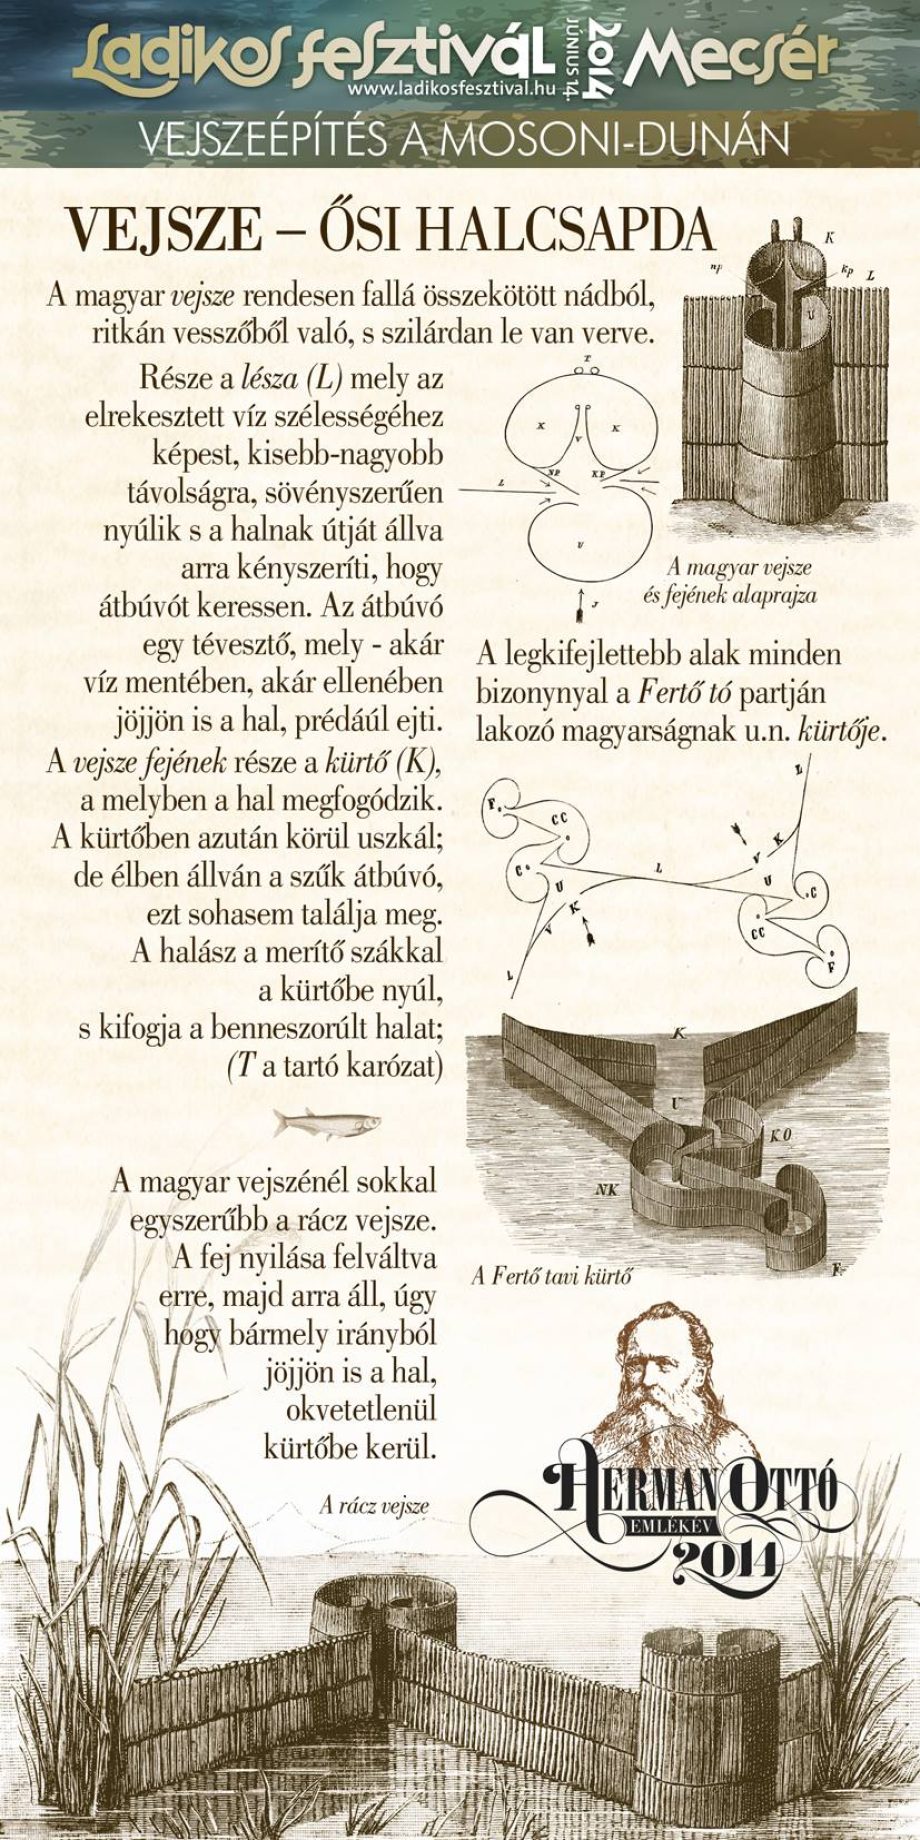 Ladikos fesztivál 2014 JÚNIUS 14. Mecsér
www.ladikosfesztival.hu
VEJSZEÉPÍTÉS A MOSONI-DUNÁN
VEJSZE – ŐSI HALCSAPDA
A magyar vejsze rendesen fallá összekötött nádból,
ritkán vesszőből való, s szilárdan le van verve.
Része a lésza (L) mely az
elrekesztett víz szélességéhez
képest, kisebb-nagyobb
távolságra, sövényszerűen
nyúlik s a halnak útját állva
arra kényszeríti, hogy
átbúvót keressen. Az átbúvó
egy tévesztő, mely - akár
víz mentében, akár ellenében
jöjjön is a hal, prédáúl ejti.
A vejsze fejének része a kürtő (K),
a melyben a hal megfogódzik.
A kürtőben azután körül uszkál;
de élben állván a szűk átbúvó,
ezt sohasem találja meg.
A halász a merítő szákkal
a kürtőbe nyúl,
s kifogja a benneszorúlt halat;
(T a tartó karózat)
K
np
kp
L
U
T
K
K
V
N.P.
K.P.
L
V
J
A magyar vejsze
és fejének alaprajza
A legkifejlettebb alak minden
bizonynyal a Fertő tó partján
lakozó magyarságnak u.n. kürtője.
L
F.
CC
C
U
K
V
L
L
K
V
U
C
CC
F
K
U
KO
NK
F.
A Fertő tavi kürtő
A magyar vejszénél sokkal
egyszerűbb a rácz vejsze.
A fej nyilása felváltva
erre, majd arra áll, úgy
hogy bármely irányból
jöjjön is a hal,
okvetetlenül
kürtőbe kerül.
A rácz vejsze
HERMAN OTTÓ
EMLÉKÉV
2014